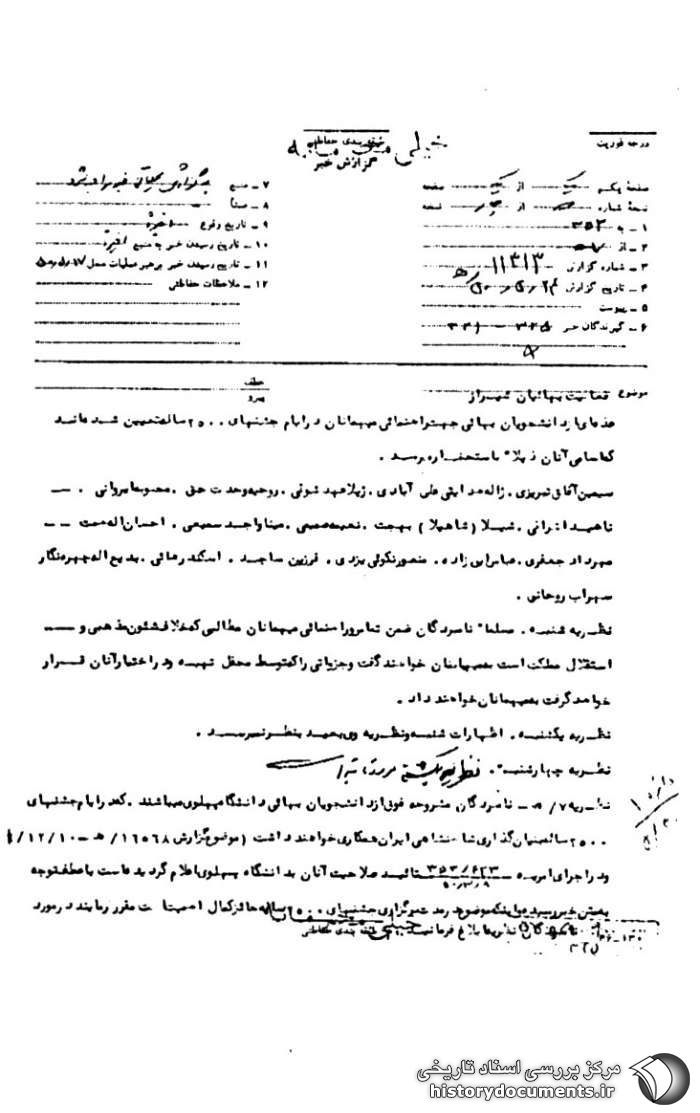 درجه فوریت
طبقه بندی حفاظتی
خیلی محرمانه
گزارش خبر
صفحه یکم یک از یک صفحه
نسخه شماره از نسخه
۱ ـ به ۳۵۳
۲ ـ از ۵۷
۳ ـ شماره گزارش ۱۱۳۱۳
۴ ـ تاریخ گزارش
۵ ـ پیوست
۶ ـ گیرندگان خبر ۳۴۵ ـ ۳۳۱
۷ ـ منبع
۸ ـ منشأ
۹ ـ تاریخ وقوع اخیراً
۱۰ ـ تاریخ رسیدن خبر به منبع اخیراً
۱۱ ـ تاریخ رسیدن خبر برهبر عملیات محل
۱۲ ـ ملاحظات حفاظتی
عطف
پیرو
موضوع فعالیت بهائیان شیراز
عده‌ای از دانشجویان بهائی جهت راهنمائی میهمانان در ایام جشنهای ۲۵۰۰ ساله تعیین شده‌اند
که اسامی آنان ذیلاً باستحضار میرسد .
سیمین آفاقی تبریزی . ژاله هدایتی علی آبادی . ژیلا عهد شوقی . روحیه وحدت حق . محبوبه ایروانی .
ناهید ایرانی . شهلا ( شاهیلا ) بهجت . نعیمه صمیمی . مینا واجد سمیعی . احسان اله همت
مهرداد جعفری . عباس راین زاده . منصور نکوئی یزدی . فرزین ساجد . اسکندر هائی . بدیع اله چهره نگار
سهراب روحانی .
نظریه شنبه . مسلماً نامبردگان ضمن تماس و راهنمائی میهمانان مطالبی که خلاف شئون مذهبی و
استقلال مملکت است به میهمانان خواهند گفت و جزیاتی را که توسط محفل تهیه و در اختیار آنان قرار
خواهد گرفت به میهمانان خواهند داد .
نظریه یکشنبه . اظهارات شنبه و نظریه وی بعید بنظر نمیرسد .
نظریه چهارشنبه . نظریه یکشنبه مورد تائید است
نظریه ۷/ه ـ نامبردگان مشروحه فوق از دانشجویان بهائی دانشگاه پهلوی میباشند . که در ایام جشنهای
۲۵۰۰ ساله بنیان گذاری شاهنشاهی ایران همکاری خواهند داشت ( موضوع گزارش ۱۶۵۶۸/ه ـ ۱۰/۱۲/
و در اجرای امریه ۳۵۳/۶۲۳ تائید صلاحیت آنان به دانشگاه پهلوی اعلام گردیده است با عطف توجه
بمتن خبر رسیده و اینکه موضوع در مدت برگزاری جشنهای ۲۵۰۰ ساله حائز کمال اهمیت است مقرر فرمایند در مورد
نامبردگان نظریه ابلاغ فرمایند
طبقه بندی حفاظتی
خیلی محرمانه
مرکز بررسی اسناد تاریخی
historydocuments.ir